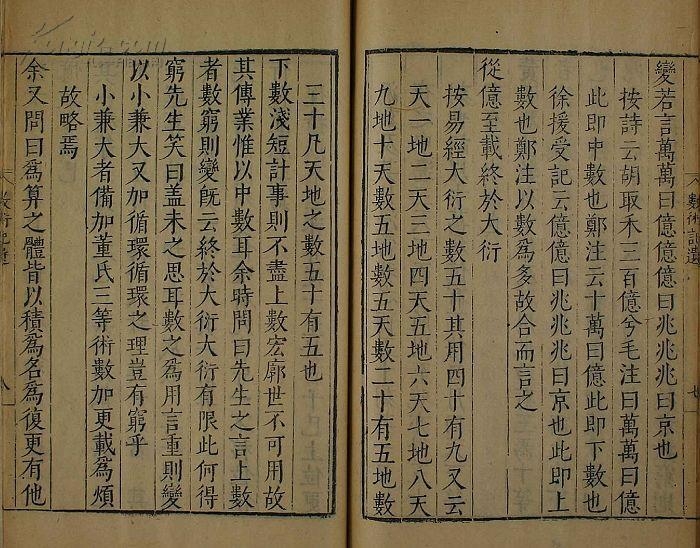 變若言萬萬曰億億億曰兆兆兆曰京也
按詩云胡取禾三百億兮毛注曰萬萬曰億
此即中數也鄭注云十萬曰億此即下數也
徐援受記云億億曰兆兆兆曰京也此即上
數也鄭注以數為多故合而言之
從億至載終於大衍
按易經大衍之數五十其用四十有九又云
天一地二天三地四天五地六天七地八天
九地十天數五地數五天數二十有五地數
數術記遺
七
三十凡天地之數五十有五也
下數淺短計事則不盡上數宏廓世不可用故
其傳業惟以中數耳余時問曰先生之言上數
者數窮則變旣云終於大衍大衍有限此何得
窮先生笑曰盖未之思耳數之為用言重則變
以小兼大又加循環循環之理豈有窮乎
小兼大者備加董氏三等術數加更載為煩
故略焉
余又問曰為算之體皆以積為名為復更有他
數術記遺
八